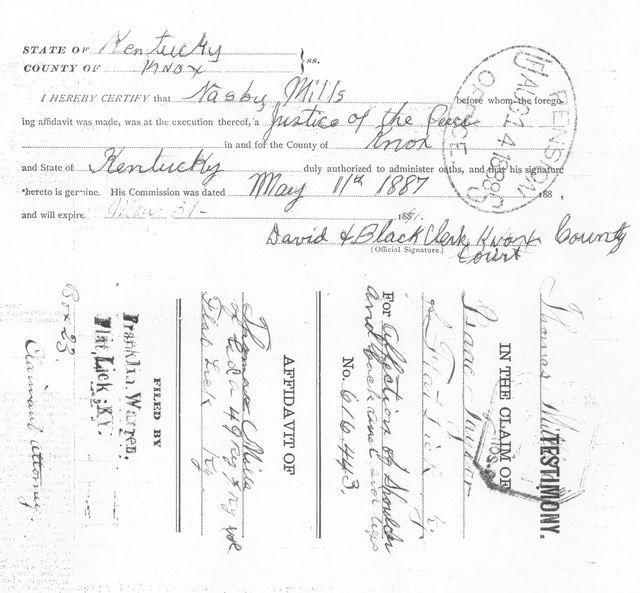 STATE OF Kentucky
COUNTY OF Knox } ss.
I HEREBY CERTIFY that Nasby Mills before whom the forego-
ing affidavit was made, was at the execution thereof, a Justice of the Peace
in and for the County of Knox
and State of Kentucky duly authorized to administer oaths, and that his signature
thereto is genuine. His Commission was dated May 11th 1887 188 ,
and will expire May 31- 18
David Black Clerk Knox County
(Official Signature.) Court
U.S. PENSION OFFICE
AUG 14 1888
TESTIMONY.
Thomas
IN THE CLAIM OF
Isaac
of Flat Lick Ky.
For affection of Shoulder
and back and
No. 616,443.
AFFIDAVIT OF
Thomas Mills
49 Reg Ky Vol
Flat Lick
Ky
FILED BY
Franklin Warren,
Flat Lick, KY.
Box 23.
Claimant Attorney.